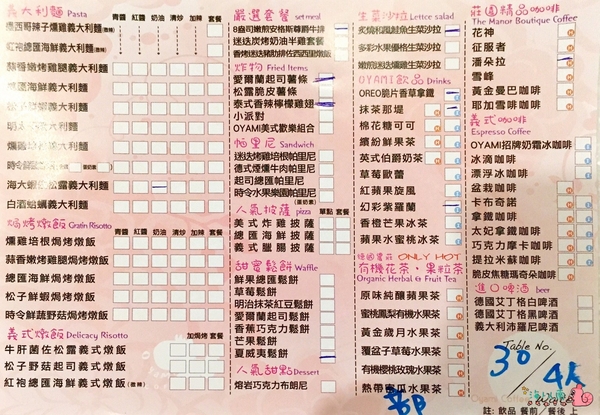 義大利麵 Pasta 青醬 紅醬 奶油 清炒 加辣 套餐
墨西哥辣子燻雞義大利麵(微辣)
紅袍總匯海鮮義大利麵(微辣)
蒜香嫩烤雞腿義大利麵
總匯海鮮義大利麵
松子野菇義大利麵
明太子
海大蝦佐松露義大利麵
白酒蛤蜊義大利麵
焗烤燉飯 Gratin Risotto 青醬 紅醬 奶油 加辣 套餐
燻雞培根焗烤燉飯
蒜香嫩烤雞腿焗烤燉飯
總匯海鮮焗烤燉飯
松子鮮蝦焗烤燉飯
時令鮮蔬野菇焗烤燉飯
義式燉飯 Delicacy Risotto 加焗烤 套餐
牛肝菌佐松露義式燉飯
松子野菇起司義式燉飯
紅袍總匯海鮮義式燉飯(微辣)
嚴選套餐 set meal
8盎司嫩煎安格斯藤牛排
迷迭炭烤奶油半雞套餐
香烤迷迭豬肋排佐西西里燉飯
炸物 Fried Items
愛爾蘭起司薯條
松露脆皮薯條
泰式香辣檸檬雞翅
小派對
OYAMI美式歡樂組合
帕里尼 Sandwich
迷迭烤雞培根帕里尼
德式煙燻牛肉帕里尼
起司總匯帕里尼
時令水果樂園帕里尼
(蛋奶素)
人氣披薩 pizza 單點 套餐
美式炸雞披薩
總匯海鮮披薩
義式臘腸披薩
甜蜜鬆餅 Waffle
鮮果總匯鬆餅
草莓鬆餅
明治抹茶紅豆鬆餅
愛爾蘭起司鬆餅
香蕉巧克力鬆餅
芒果鬆餅
夏威夷鬆餅
人氣甜點 Dessert
熔岩巧克力布朗尼
生菜沙拉 Lettce salad
炙燒松露鮭魚生菜沙拉
多彩水果優格生菜沙拉
嫩煎迷迭燻雞生菜沙拉
OYAMI飲品 Drinks
OREO脆片香草拿鐵
抹茶那堤
棉花糖可可
繽紛鮮果茶
英式伯爵奶茶
草莓歐蕾
紅蘋果旋風
幻彩紫羅蘭
香橙芒果冰茶
蘋果水蜜桃冰茶
德國農莊 ONLY HOT
有機花茶・果粒茶
Organic Herbal & Fruit Tea
原味純釀蘋果茶
蜜桃鳳梨有機水果茶
黃金歲月水果茶
覆盆子草莓水果茶
有機櫻桃玫瑰水果茶
熱帶蜜瓜水果茶
莊園精品咖啡
The Manor Boutique Coffee
花神
征服者
潘朵拉
雪峰
黃金曼巴咖啡
耶加雪啡咖啡
義式咖啡
Espresso Coffee
OYAMI招牌奶霜冰咖啡
冰滴咖啡
漂浮冰咖啡
盆栽咖啡
卡布奇諾
拿鐵咖啡
太妃拿鐵咖啡
巧克力摩卡咖啡
提拉米蘇咖啡
脆皮焦糖瑪奇朵咖啡
進口啤酒 beer
德國艾丁格白啤酒
德國艾丁格黑啤酒
義大利沛羅尼啤酒
Table No.
30 / 4大
註: 飲品 餐前 / 餐後 上